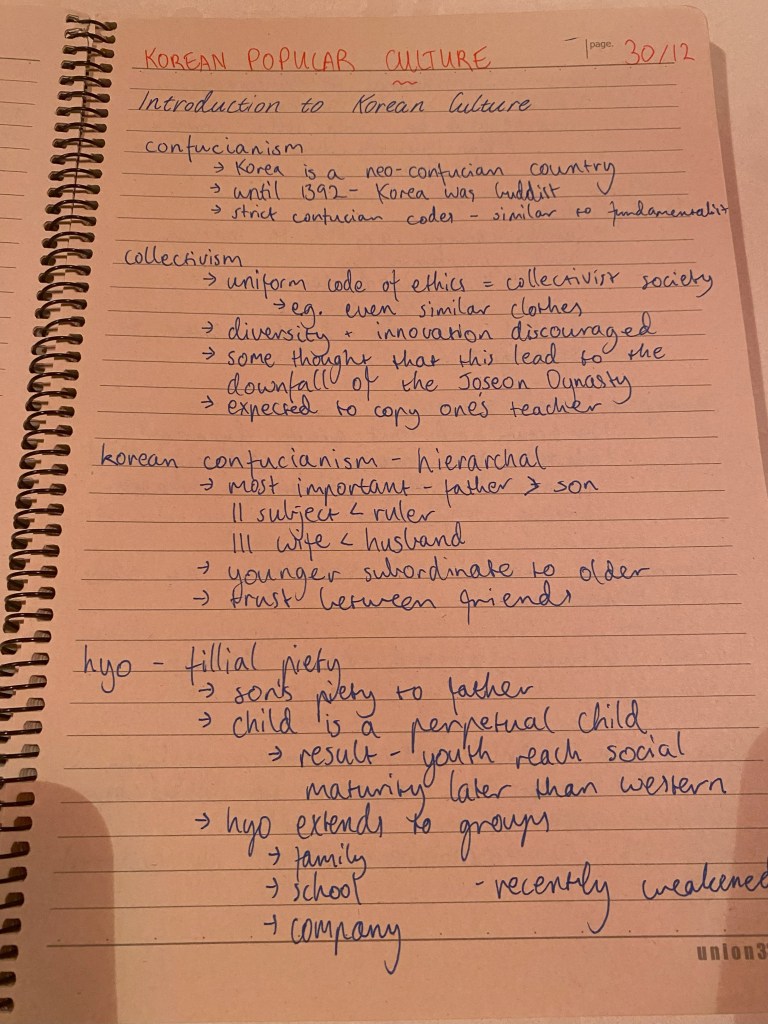 KOREAN POPULAR CULTURE
page. 30/12
Introduction to Korean Culture
confucianism
→ Korea is a neo-confucian country
→ until 1392 - Korea was buddist
→ strict confucian codes - similar to fundamentalist
collectivism
→ uniform code of ethics = collectivist society
→ eg. even similar clothes
→ diversity + innovation discouraged
→ some thought that this lead to the
downfall of the Joseon Dynasty
→ expected to copy one's teacher
korean confucianism - hierarchal
→ most important - father > son
|| subject < ruler
||| wife < husband
→ younger subordinate to older
→ trust between friends
hyo - fillial piety
→ son's piety to father
→ child is a perpetual child
→ result - youth reach social
maturity later than western
→ hyo extends to groups
→ family
→ school - recently weakened
→ company
union3